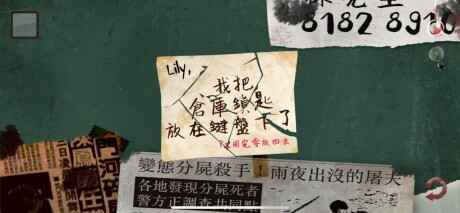 8182 8910
Lily,
我把
倉庫鎖匙
放在鍵盤下了
變態分屍殺手!
雨夜出沒的屠夫
各地發現分屍死者
警方正調查共同點